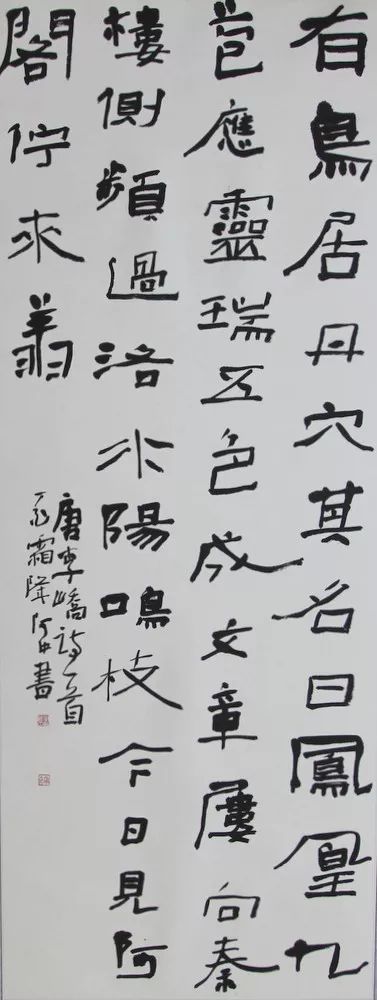 有鳥居丹穴其名曰鳳凰九
苞應靈瑞五色成文章屢向秦
樓側頻過洛水陽鳴枝今日見阿
閣佇來翔
唐李嶠詩一首
霜降書